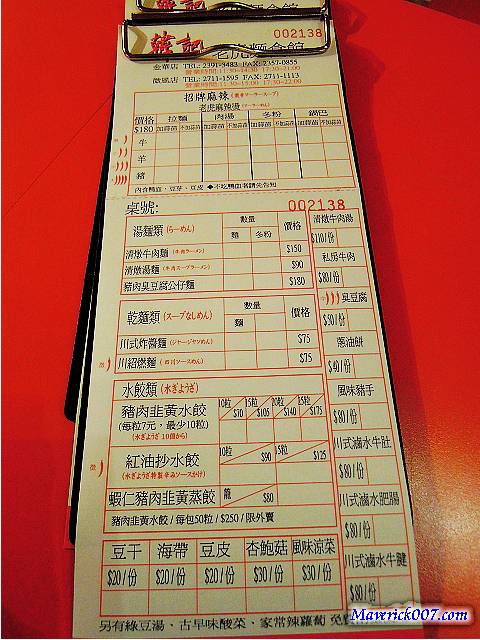 韓記
002138
老虎麵食館
金華店 TEL: 2391-3483 FAX: 2357-0855
營業時間:11:30~14:30 17:30~21:00
微風店 TEL: 2711-1595 FAX: 2711-1113
招牌麻辣
老虎麻辣湯
價格 拉麵 肉湯 冬粉 鍋巴
$180 加蒜苗 不加蒜苗 加蒜苗 不加蒜苗 加蒜苗 不加蒜苗 加蒜苗 不加蒜苗
牛
羊
豬
內含鴨血、豆芽、豆皮 ◆不吃鴨血者請先告知
桌號: 002138
湯麵類 (らーめん) 數量 麵 冬粉 價格
清燉牛肉麵 (牛肉ラーメン) $150
清燉湯麵 (牛肉スープラーメン) $90
豬肉臭豆腐公仔麵 $180
乾麵類 (スープなしめん) 數量 麵 價格
川式炸醬麵 (ジャージャンめん) $75
川紹燃麵 (四川ソースめん) $75
水餃類 (水ぎょうざ)
豬肉韭黃水餃 10粒 $70 15粒 $105 20粒 $140 25粒 $175
(每粒7元，最少10粒)
(水ぎょうざ 10個から)
紅油抄水餃 10粒 $90 15粒 $125
(水ぎょうざ特製辛みソースかけ)
蝦仁豬肉韭黃蒸餃 籠 $80
豬肉韭黃水餃 / 每包50粒 / $250 / 限外賣
豆干 海帶 豆皮 杏鮑菇 風味涼菜
$20/份 $20/份 $20/份 $30/份 $30/份
清燉牛肉湯
$110/份
私房牛肉
$80/份
臭豆腐
$50/份
蔥油餅
$40/份
風味豬手
$80/份
川式滷水牛肚
$80/份
川式滷水肥腸
$80/份
川式滷水牛腱
$80/份
另有綠豆湯、古早味酸菜、家常辣蘿蔔 免費
Maverick007.com